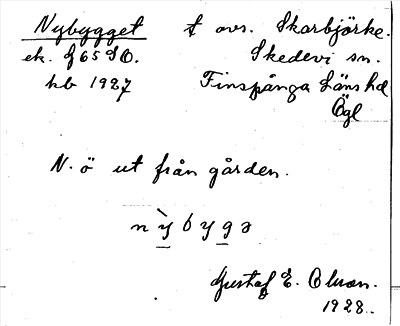 Nybygget t ovs. Skarbjörke.
ek. f 65 SO. Skedevi sn.
hb 1927 Finspånga Läns hd
Ögl
N. ö ut från gården.
nỳbygə
Gustaf E. Olsson.
1928.